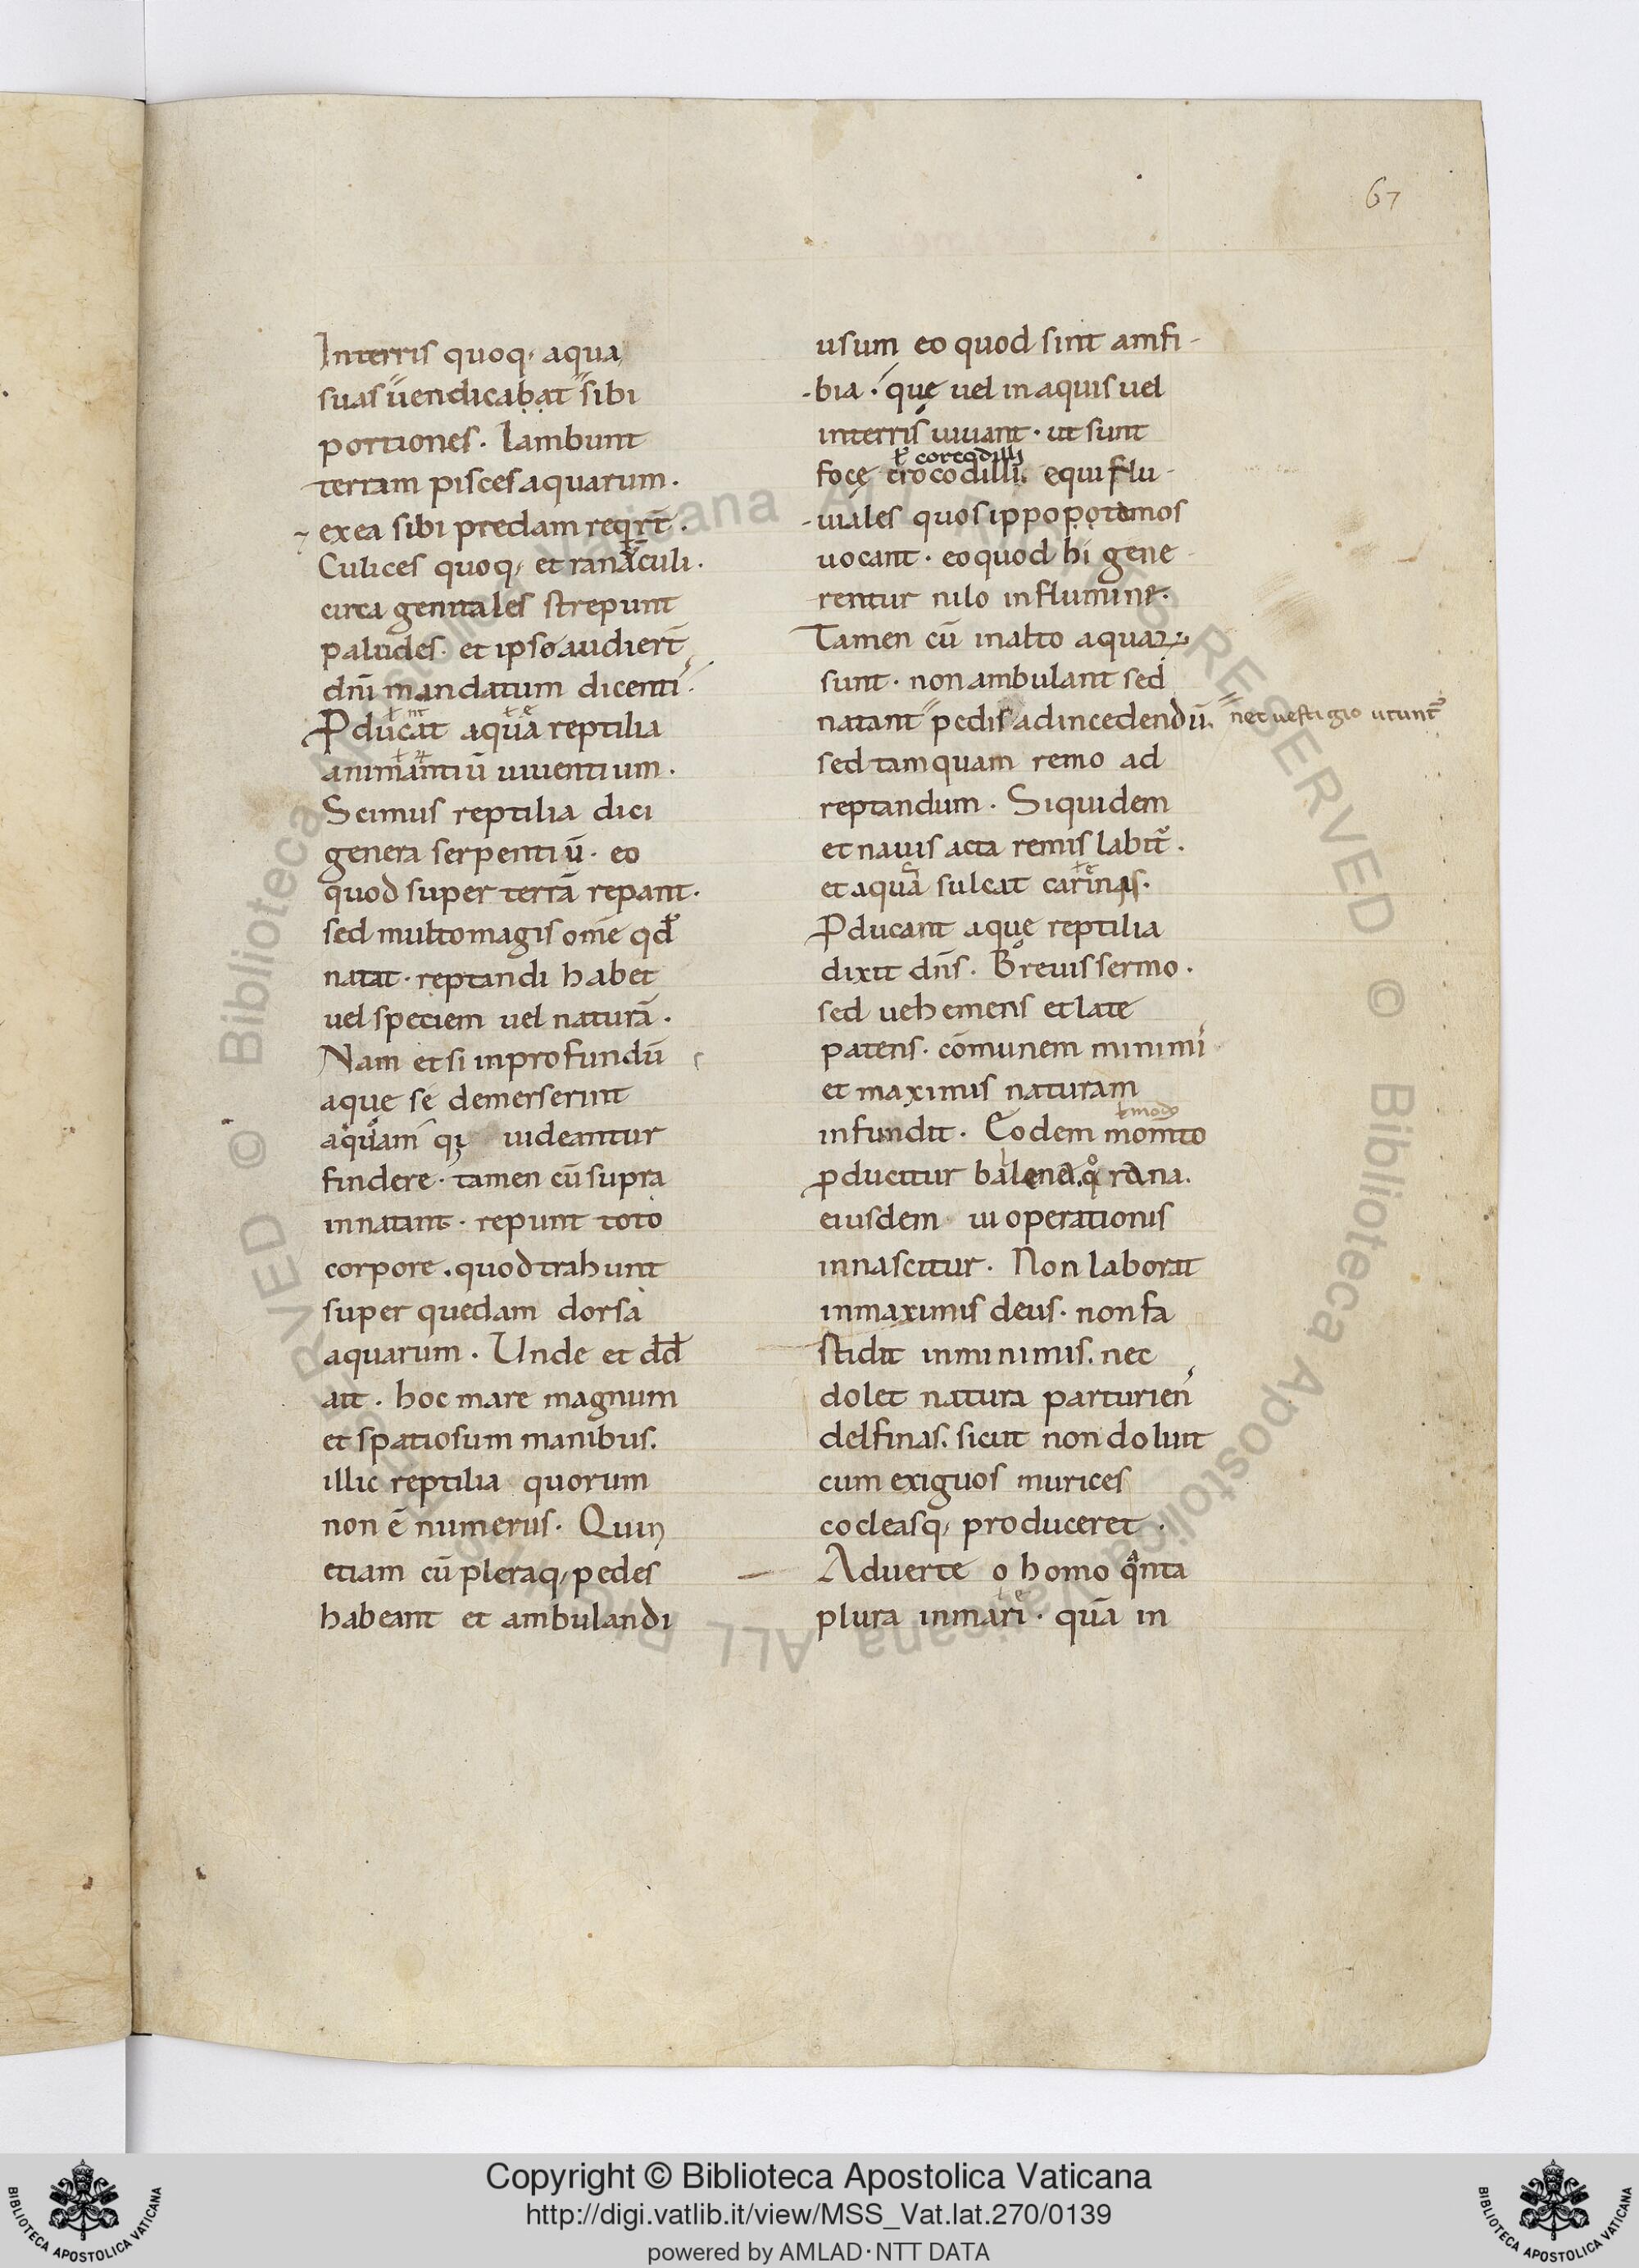 67
Interris quoq, aqua
suas uendicabat sibi
portiones. lambunt
terram pisces aquarum.
⁊ exea sibi predam reqrt̄.
Culices quoq, et ranaculi.
circa genitales strepunt
paludes. et ipse audiert̄
dn̄i mandatum dicenti.
Pducat aqua reptilia
animantiū uiuentium.
Scimus reptilia dici
genera serpentiū. eo
quod super terrā repant.
sed multomagis om̄e qd̄
natat. reptandi habet
uel speciem uel naturā.
Nam et si inprofundū
aquę se demerserint
aquam qȝ uideantur
findere. tamen cū supra
innatant. repunt toto
corpore. quod trahunt
super quedam dorsa
aquarum. Unde et dd̄
ait. hoc mare magnum
et spatiosum manibus.
illic reptilia quorum
non ē numerus. Quin
etiam cū pleraq, pedes
habeant et ambulandi
usum eo quod sint amfi-
-bia. quę uel in aquis uel
interris uiuant. ut sunt
ł corcodilli
focę crocodilli. equi flu-
-uiales quos ippopotamos
uocant. eo quod hi gene
rentur nilo in flumine.
Tamen cū inalto aquaꝝ
sunt. non ambulant sed
natant pedis ad incedendū. nec uestigio utunt᷑
sed tamquam remo ad
reptandum. Siquidem
et nauis acta remis labit᷑.
et aquā sulcat carinas.
Pducant aquę reptilia
dixit dn̄s. Breuis sermo.
sed uehemens et late
patens. cōmunem minimi
et maximis naturam
ł modo
infundit. Eodem momto
pducitur balena. qͦ rana.
eiusdem ui operationis
innascitur. Non laborat
inmaximis deus. non fa
stidit inminimis. nec
dolet natura parturien
delfinas. sicut non doluit
cum exiguos murices
cocleasq, produceret.
Aduerte o homo qͣnta
plura inmari. quā in
Copyright © Biblioteca Apostolica Vaticana
http://digi.vatlib.it/view/MSS_Vat.lat.270/0139
powered by AMLAD·NTT DATA